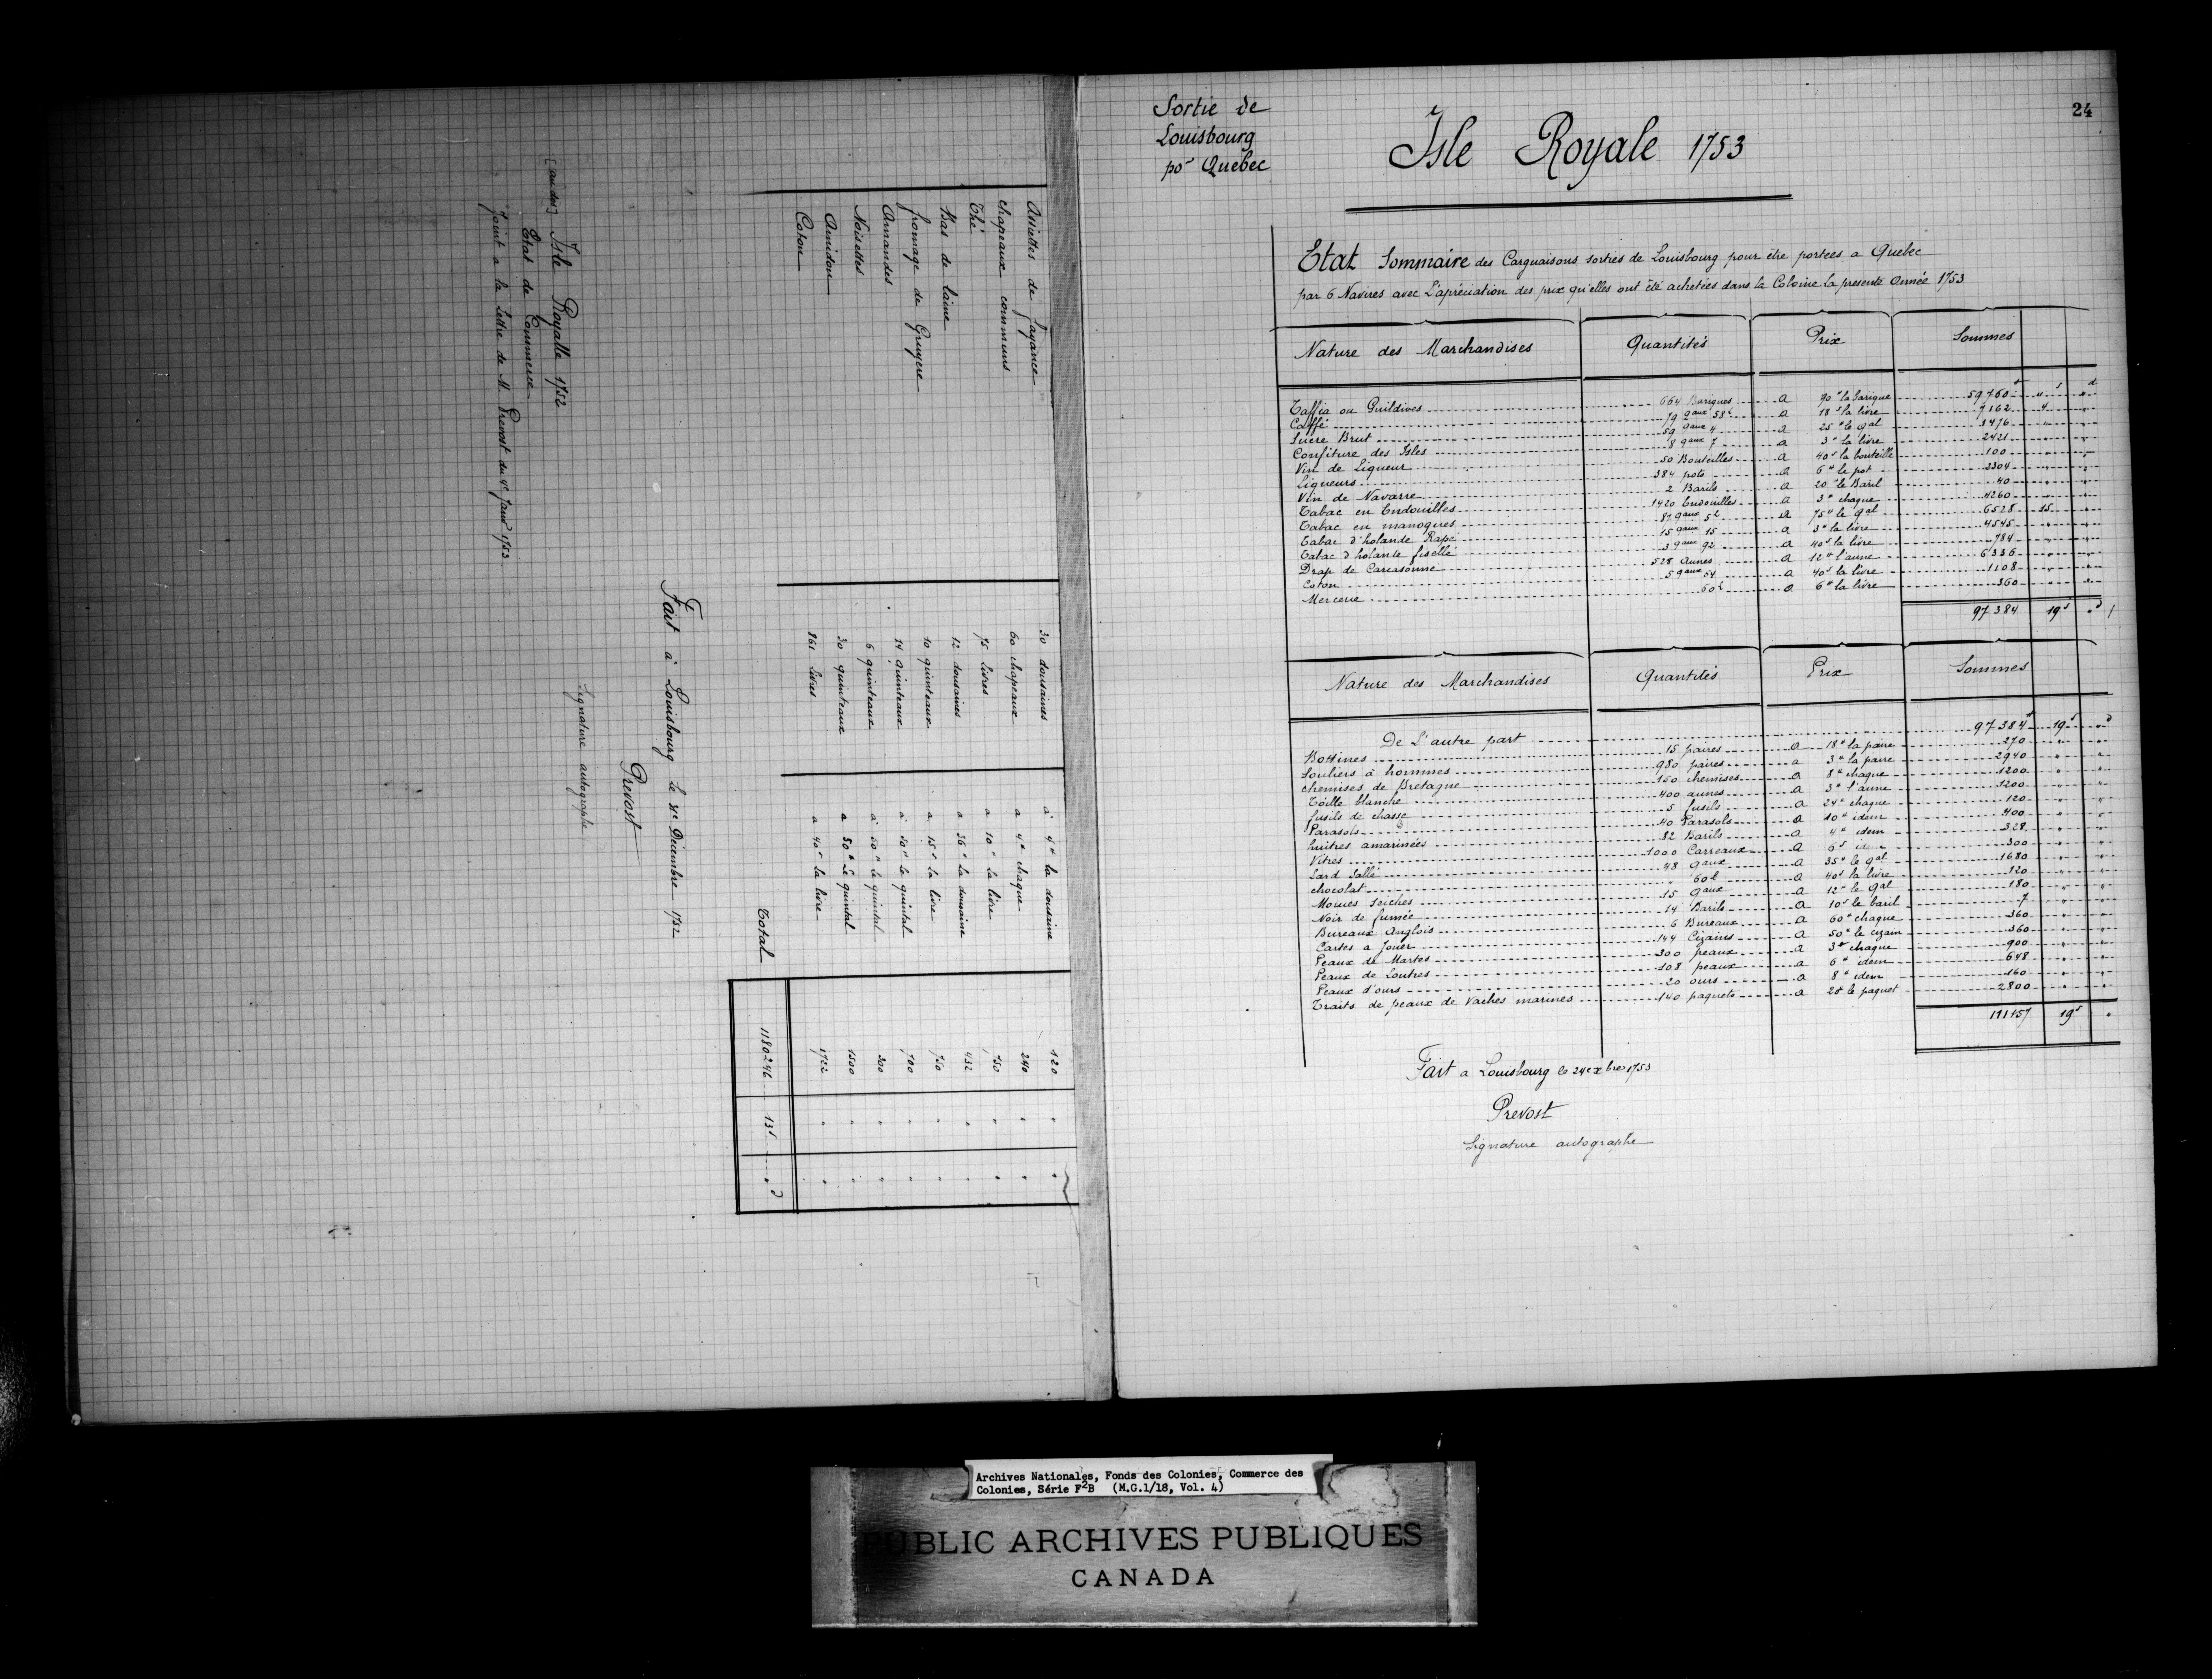 Assiettes de fayance 30 dousaines à 4# la dousaine 120 " "
chapeaux communs 60 chapeaux a 4# chaque 240 " "
Thé 75 livres a 10# la livre 750 " "
Bas de laine 12 dousaines a 36# la dousaine 432 " "
fromage de Gruyere 10 quinteaux a 15s la livre 750 " "
Amandes 14 quinteaux à 50# le quintal 700 " "
Noisettes 6 quinteaux à 50# le quintal 300 " "
Amidon 30 quinteaux a 50# Le quintal 1500 " "
Coton 861 livres a 40s la livre 1722 " "
Total 1180246 13s " d
Fait à Louisbourg Le 31e Décembre 1752
Prevost
Signature autographe
[au dos] Isle Royalle 1752
Etat de Commerce
Joint a la Lettre de M. Prevost du 4e Janv 1753
24
Sortie de
Louisbourg
pr Quebec
Isle Royale 1753
Etat Sommaire des Carguaisons sorties de Louisbourg pour être portees a Quebec
par 6 Navires avec L'apréciation des prix qu'elles ont été achetées dans la Colonie la presente Année 1753
Nature des Marchandises Quantités Prix Sommes
Taffia ou Guildives 664 Bariques a 90# la barique 59760# " s " d
Caffé 79 qaux 58l a 18s la livre 7162 4 "
Sucre Brut 59 qaux 4 a 25# le qal 1476 " "
Confiture des Isles 8 qaux 7 a 3# la livre 2421 " "
Vin de Liqueur 50 Bouteilles a 40s la bouteille 100 " "
Liqueurs 384 pots a 6# le pot 2304 " "
Vin de Navarre 2 Barils a 20# le Baril 40 " "
Tabac en Endouilles 1420 Endouilles a 3# chaque 4260 " "
Tabac en manoques 87 qaux 5l a 75# le qal 6528 15 "
Tabac d'holande Rapé 15 qaux 15 a 3# la livre 4545 " "
Tabac d'holande fisellé 3 qaux 92 a 40s la livre 784 " "
Drap de Carcasonne 528 Aunes a 12# l'aune 6336 " "
Coton 5 qaux 54 a 40s la livre 1108 " "
Mercerie 60l a 6# la livre 360 " "
97384 19s " d
Nature des Marchandises Quantités Prix Sommes
De L'autre part 97384# 19s " d
Bottines 15 paires a 18# la paire 270 " "
Souliers à hommes 980 paires a 3# la paire 2940 " "
chemises de Bretagne 150 chemises a 8# chaque 1200 " "
Toille blanche 400 aunes a 3# l'aune 1200 " "
fusils de chasse 5 fusils a 24# chaque 120 " "
Parasols 40 Parasols a 10# idem 400 " "
huitres amarinées 82 Barils a 4# idem 328 " "
Vitres 1000 Carreaux a 6s idem 300 " "
Lard Sallé 48 qaux a 35# le qal 1680 " "
chocolat 60l a 40s la livre 120 " "
Morues seiches 15 qaux a 12# le qal 180 " "
Noir de fumée 14 Barils a 10s le baril 7 " "
Bureaux Anglois 6 Bureaux a 60# chaque 360 " "
Cartes a Jouer 144 Cizains a 50s le cizain 360 " "
Peaux de Martes 300 peaux a 3# chaque 900 " "
Peaux de Loutres 108 peaux a 6# idem 648 " "
Peaux d'ours 20 ours a 8# idem 160 " "
Traits de peaux de Vaches marines 140 paquets a 20# le paquet 2800 " "
111157 19s "
Fait a Louisbourg le 24e xbre 1753
Prevost
Signature autographe
Archives Nationales, Fonds des Colonies, Commerce des
Colonies, Série F2B (M.G.1/18, Vol. 4)
PUBLIC ARCHIVES PUBLIQUES
CANADA